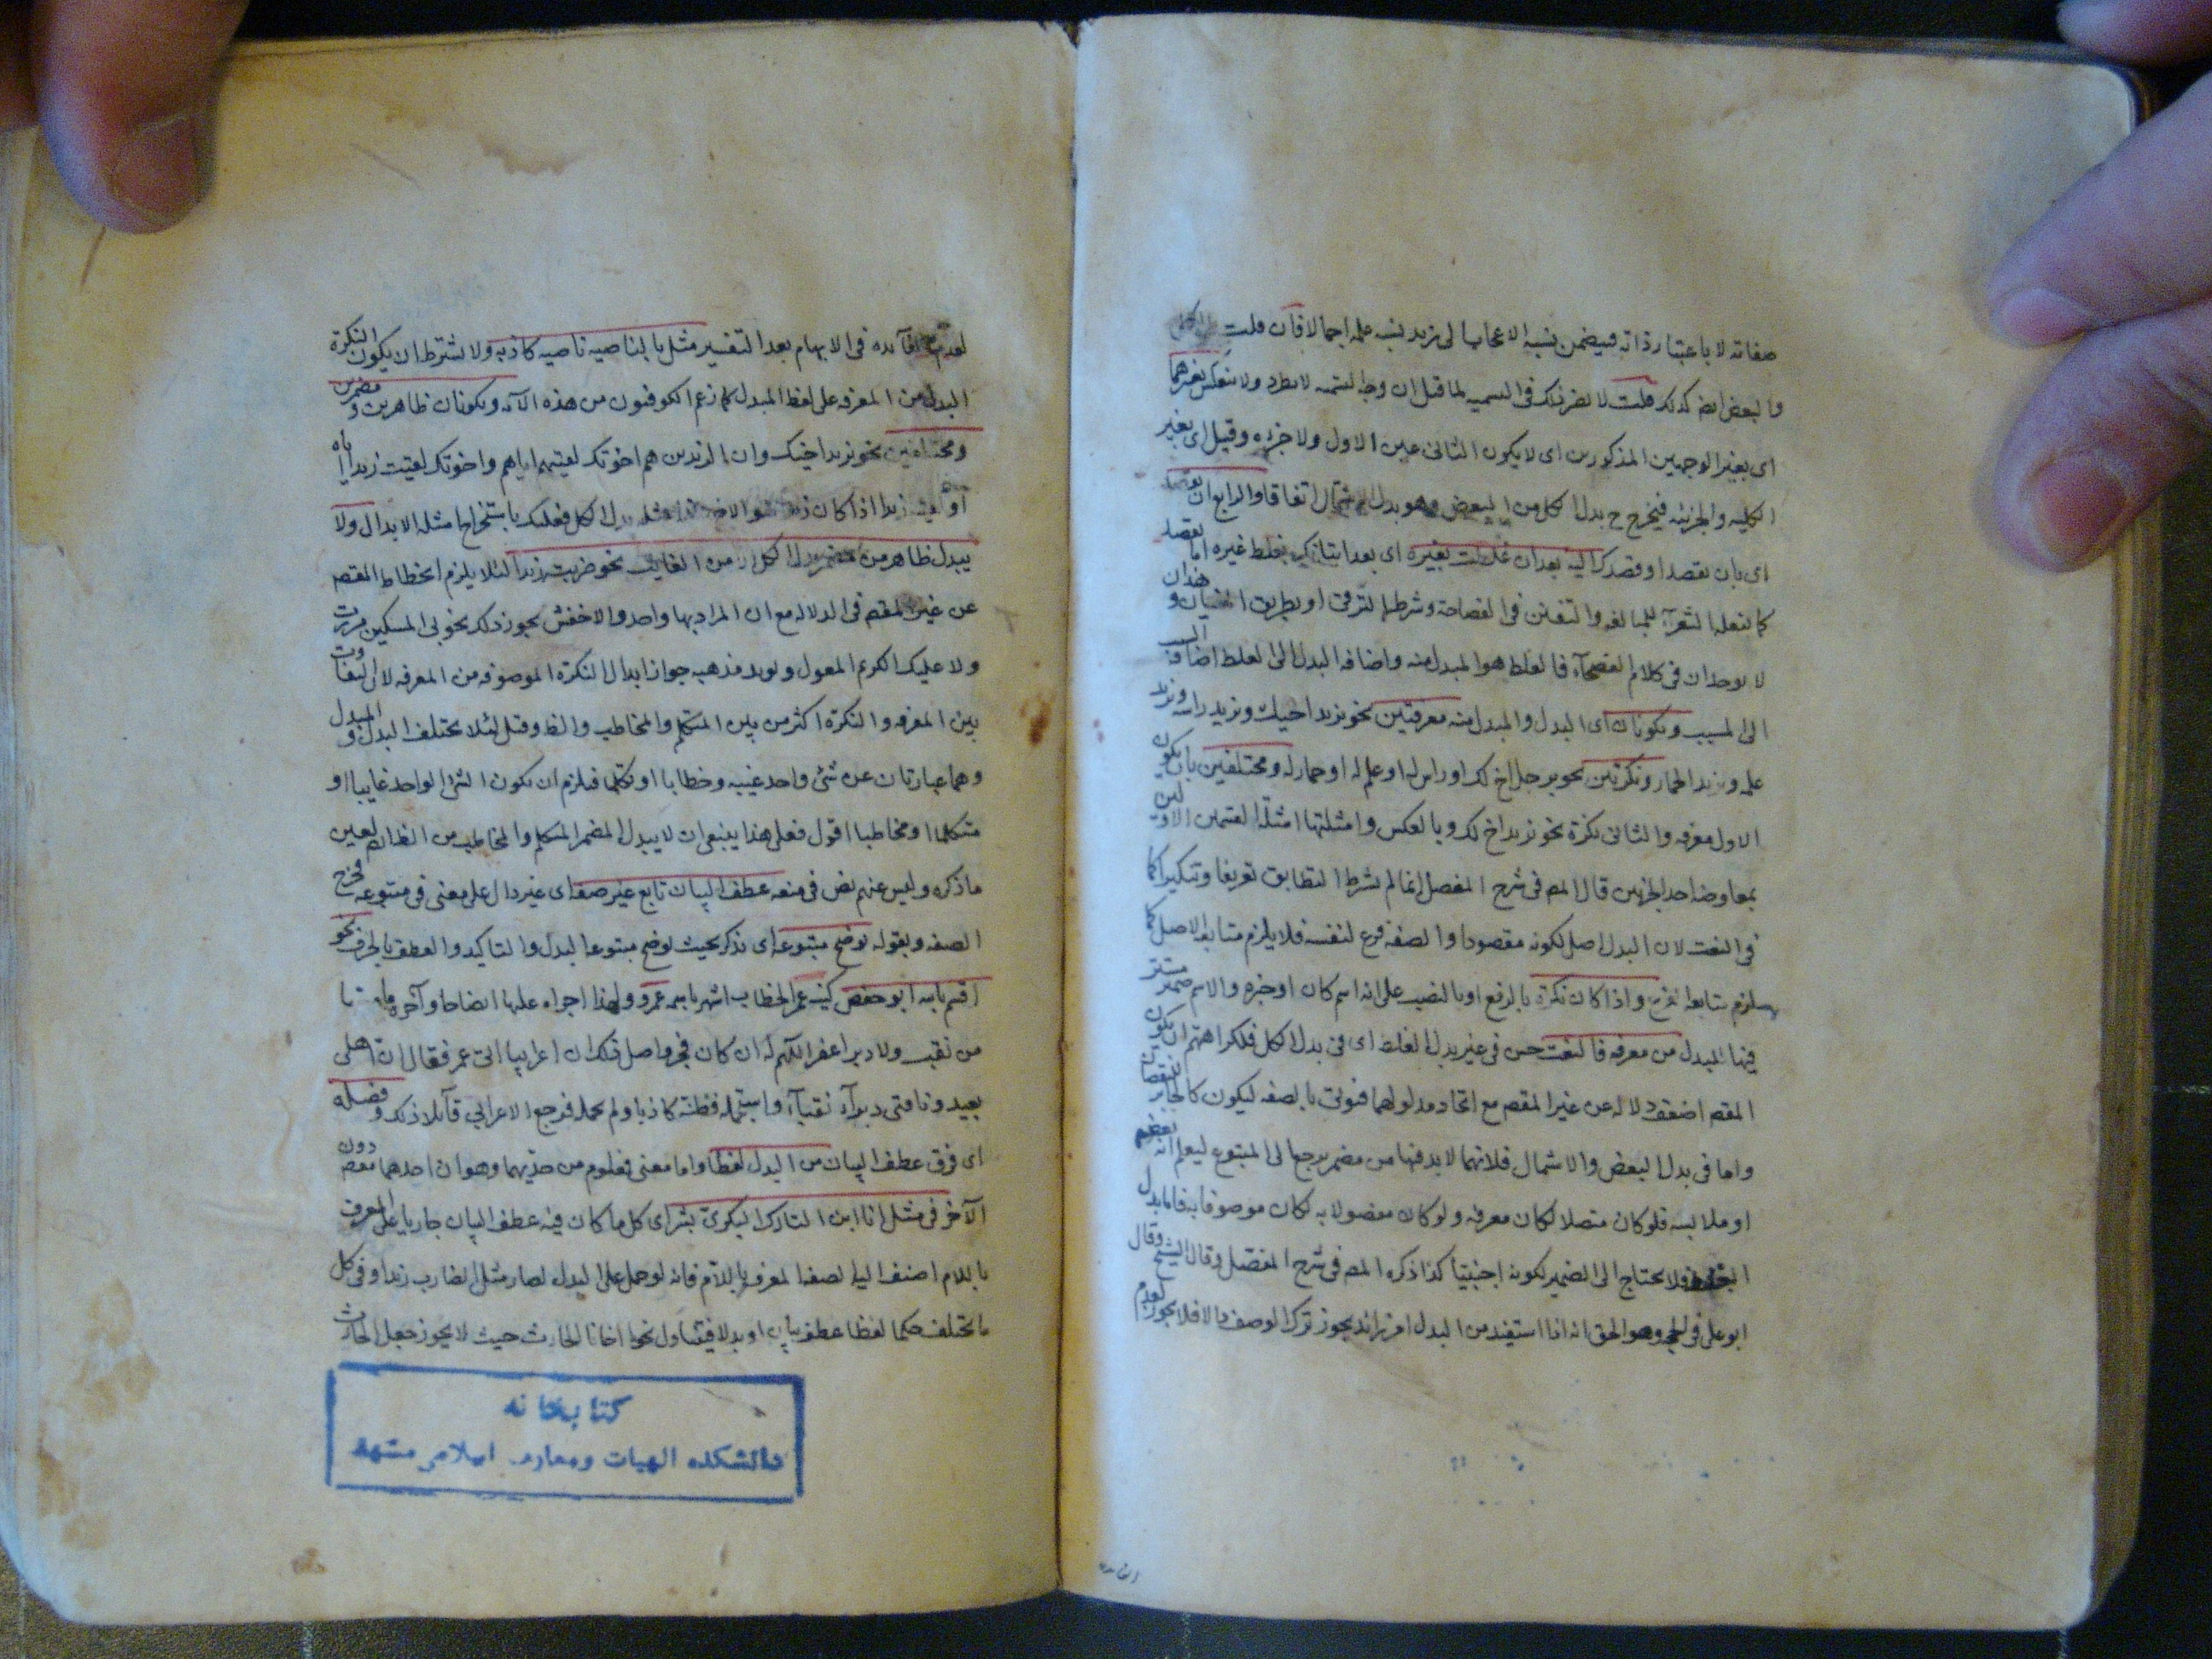 صفاته لا باعتبار ذاته فيضمن نسبه الاعجاب الى زيد نسبه علمه اجمالا فان قلت
والبعض ايض كذلك قلت لا يضر ذلك فى التسميه لما قيل ان وجه التسميه لا يطرد ولا ينعكس بغيرهما
اى بغير الوجهين المذكورين اى لا يكون الثانى عين الاول ولا جزءه وقيل اى بغير
الكليه والجزئيه فيخرج ح بدل الكل من البعض وهو بدل الاشتمال اتفاقا والرابع ان تقصد
اى بان تقصد او قصدك اليه بعد ان غلطت بغيره اى بعد اتيانك بغلط غيره اما بقصد
كما تفعله الشعرآء للمبالغه والتفنن فى الفصاحة وشرطه الترقى او بطريق النسيان وهذان
لا يوجدان فى كلام الفصحآء فالغلط هو المبدل منه واضافه البدل الى الغلط اضافة السبب
الى المسبب ويكونان اى البدل والمبدل منه معرفتين نحو زيد اخيك وزيد راسه وزيد
علمه وزيد الحمار ونكرتين نحو برجل اخ لك او راس له او علم له او حمار له ومختلفين بان يكون
الاول معرفه والثانى نكرة نحو زيد اخ لك وبالعكس وامثلتها امثلة القسمين الاولين
بمعاوضه احد الجزئين قال المص فى شرح المفصل انما لم يشرط التطابق تعريفا وتنكيرا كما
فى النعت لان البدل اصل لكونه مقصودا والصفه فرع لنفسه فلا يلزم متابعه الاصل كما
يستلزم متابعه الفرع واذا كان نكرة بالرفع او بالنصب على انه اسم كان او خبره والاسم ضمير مستتر
فيها المبدل من معرفه فالنعت حس فى غير بدل الغلط اى فى بدل الكل فلكراهتهم ان يكون
المقصـ اضعف دلاله عن غير المقصـ مع اتحاد مدلولهما فنوتى بالصفه ليكون كالجابر لنقصان
واما فى بدل البعض والاشتمال فلانهما لا بد فيها من مضمر يرجع الى المتبوع ليعلم انه بعضه
او ملابسه فلو كان متصلا لكان معرفه ولو كان مفصولا به لكان موصوفا به فاما بدل
الغلط فلا يحتاج الى الضمير لكونه اجنبيا كذا ذكره المص فى شرح المفصل وقال الشيخ
ابو على فى الحجه وهو الحق انه اذا استفيد من البدل امر زائد يجوز ترك الوصف والا فلا يجوز لعدم
الفائده
لعدم الفآئده فى الابهام بعد التفسير مثل بالناصيه ناصيه كاذبه ولا يشترط ان يكون النكرة
البدل من المعرفه على لفظ المبدل كما زعم الكوفيون من هذه الآيه ويكونان ظاهرين ومضمرين
ومختلفين نحو زيد اخيك وان الزيدين هم اخوتك لقيتهم اياهم واخوتك لقيت زيدا اياه
او زيدا اذا كان بدل الكل فعليك باستخراج امثله الابدال ولا
يبدل ظاهر من مضمر بدل الكل الا من الغايب نحو ضربته زيدا لئلا يلزم انحطاط المقصـ
عن غير المقصـ فى الدلاله مع ان المراد بهما واحد والاخفش يجوز ذلك نحو بى المسكين مررت
ولا عليك الكريم المعول ويويد مذهبه جواز ابدال النكرة الموصوفه من المعرفه لان التفاوت
بين المعرفه والنكرة اكثر من بين المتكلم والمخاطب والظـ وقيل لئلا يختلف البدل والمبدل
وهما عبارتان عن شئ واحد غيبه وخطابا او تكلما فيلزم ان يكون الشئ الواحد غايبا او
متكلما او مخاطبا اقول فعلى هذا ينبغى ان لا يبدل المضمر المتكلم والمخاطب من الظاهر لعين
ما ذكره وليس عنهم نص فى منعه عطف البيان تابع غير صفه اى غير دال على معنى فى متبوعه فخرج
الصفه وبقوله يوضح متبوعه اى يذكر بحيث يوضح متبوعه البدل والتاكيد والعطف بالحرف نحو
اقسم بالله ابو حفص كنيه عمر الخطاب اشهر باسمه عمر و ولهذا اجراه عليها ايضاحا وآخره ما مسها
من نقب ولا دبر اغفر اللهم له ان كان فجر واصل ذلك ان اعرابيا اتى عمر فقال ان اهلى
بعيد وناقتى دبرآء نقبآء واستحمله فظنه كاذبا ولم يحمله فرجع الاعرابى قآئلا ذلك وفصله
اى فرق عطف البيان من البدل لفظا واما معنى فمعلوم من حديهما وهو ان احدهما مقصـ دون
الآخر فى مثل انا ابن التارك البكرى بشر اى كل ما كان فيه عطف البيان جاريا على المعرف
باللام اضيف اليه الصفه المعرف باللام فانه لو حمل على البدل لصار مثل الضارب زيد او فى كل
ما يختلف حكمه لفظا عطف بيان او بدلا فيتناول نحو يا اخانا الحارث حيث لا يجوز جعل الحارث
كتابخانه
دانشكده الهيات ومعارف اسلامى مشهد